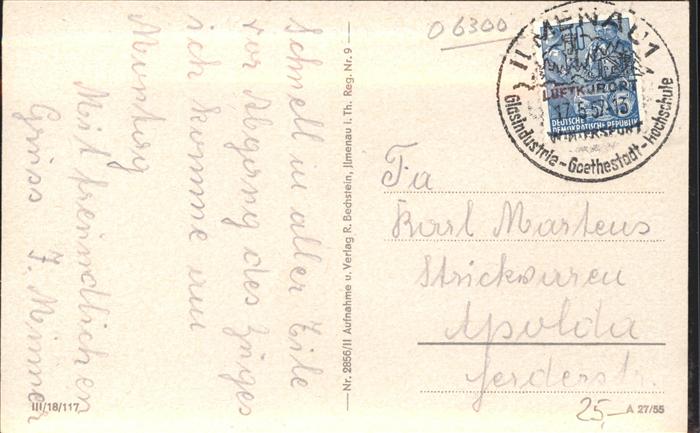 Schnell in aller Eile
vor Abgang des Zuges
ich komme am
Montag
Mit freundlichen
Gruss J. Minner
III/18/117
Nr. 2856/II Aufnahme u. Verlag R. Bechstein, Ilmenau i. Th. Reg. Nr. 9
O 6300
ILMENAU 1
LUFTKURORT
17.5.57.13
WINTERSPORT
Glasindustrie - Goethestadt - Hochschule
DEUTSCHE
DEMOKRATISCHE REPUBLIK
Fa
Karl Martens
Strickwaren
Apolda
Herderstr.
25,-
A 27/55